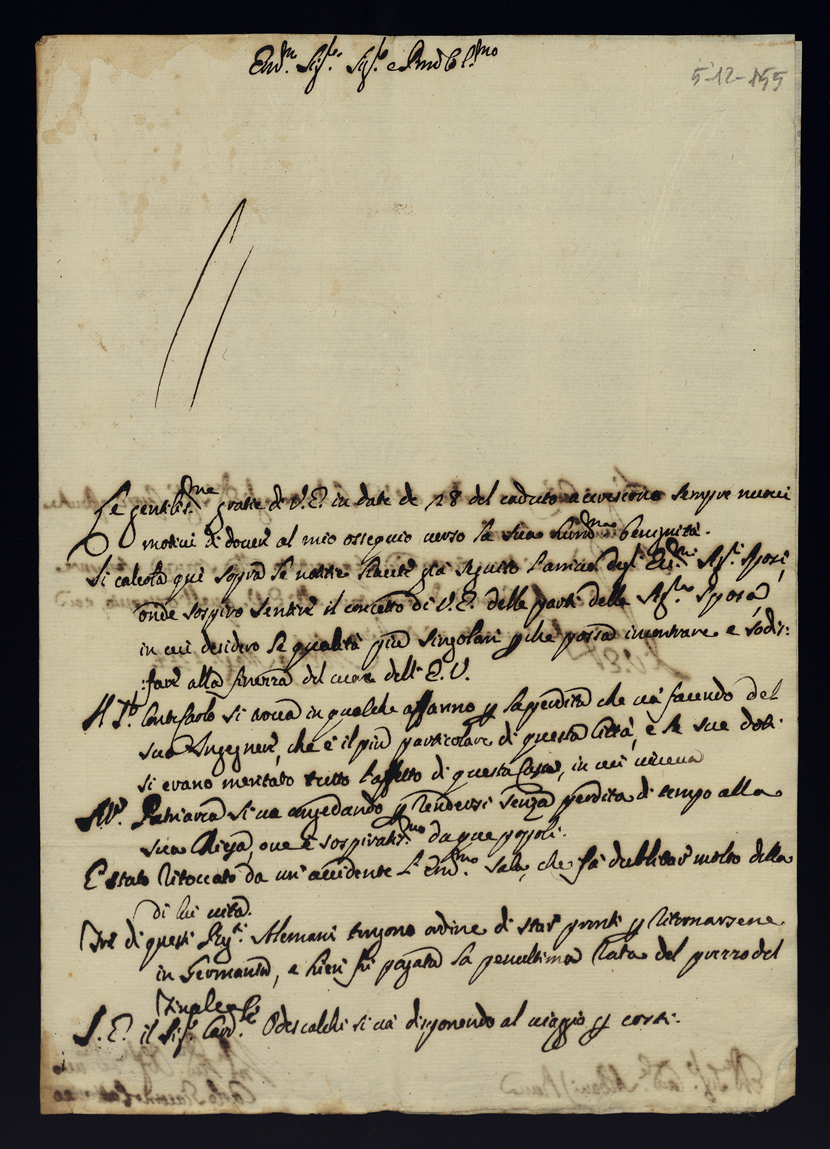 Em.mo Sig.re Sig.re e Pron Col.mo
5-12-155
Le gentilis.me grazie di V. E. in date de 28 del caduto accrescono sempre nuovi
motivi di dovere al mio ossequio verso la sua benignità.
Si calcola qui sopra le nostre già seguito l'arrivo degl' Sig.ri Sposi,
onde sospiro sentire il concetto di V. E. delle parti della Sig.ra Sposa,
in cui desidero le qualità più singolari che possa incontrare e sodis:
:fare alla finezza del cuore dell' E. V.
Il Conte Carlo si trova in qualche affanno p la perdita che và facendo del
suo Ingegnere, che è il più particolare di questa Città, e le sue doti
si erano meritato tutto l'affetto di questa Casa, in cui viveva
Patriarca si va p rendersi senza perdita di tempo alla
sua Chiesa, ove è sospiratis.mo da que popoli.
E stato ritoccato da un' accidente l' Em.mo Sala, che fà dubbitare molto della
di lui vita.
Tre di questi Regg.ti Alemani tengono ordine di star pronti p ritornarsene
in Germania, e hieri fù pagata la penultima rata del prezzo del
Finale
S. E. il Sig.r Card. Odescalchi si và disponendo al viaggio p costì.